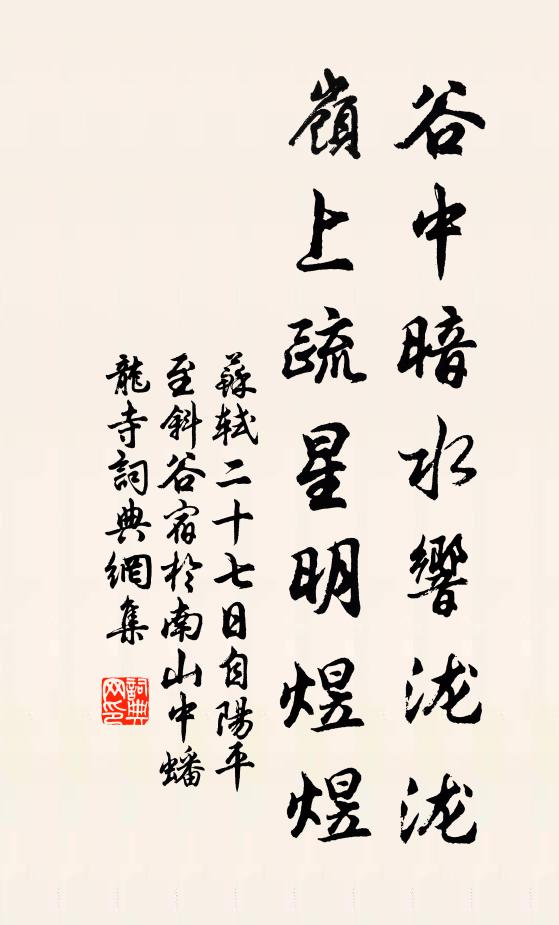 谷中暗水響泷泷
嶺上疏星明煜煜
蘇軾二十七日自陽平
至斜谷宿於南山中蟠
龍寺詞典網集
詞典网印